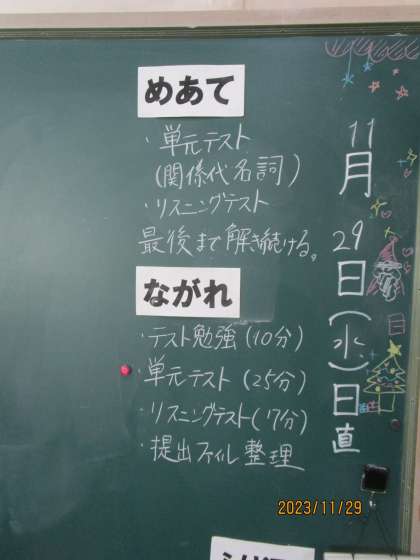 11月29日(水)日直
めあて
・単元テスト
(関係代名詞)
・リスニングテスト
最後まで解き続ける。
ながれ
・テスト勉強(10分)
・単元テスト(25分)
・リスニングテスト(7分)
・提出ファイル整理
2023/11/29